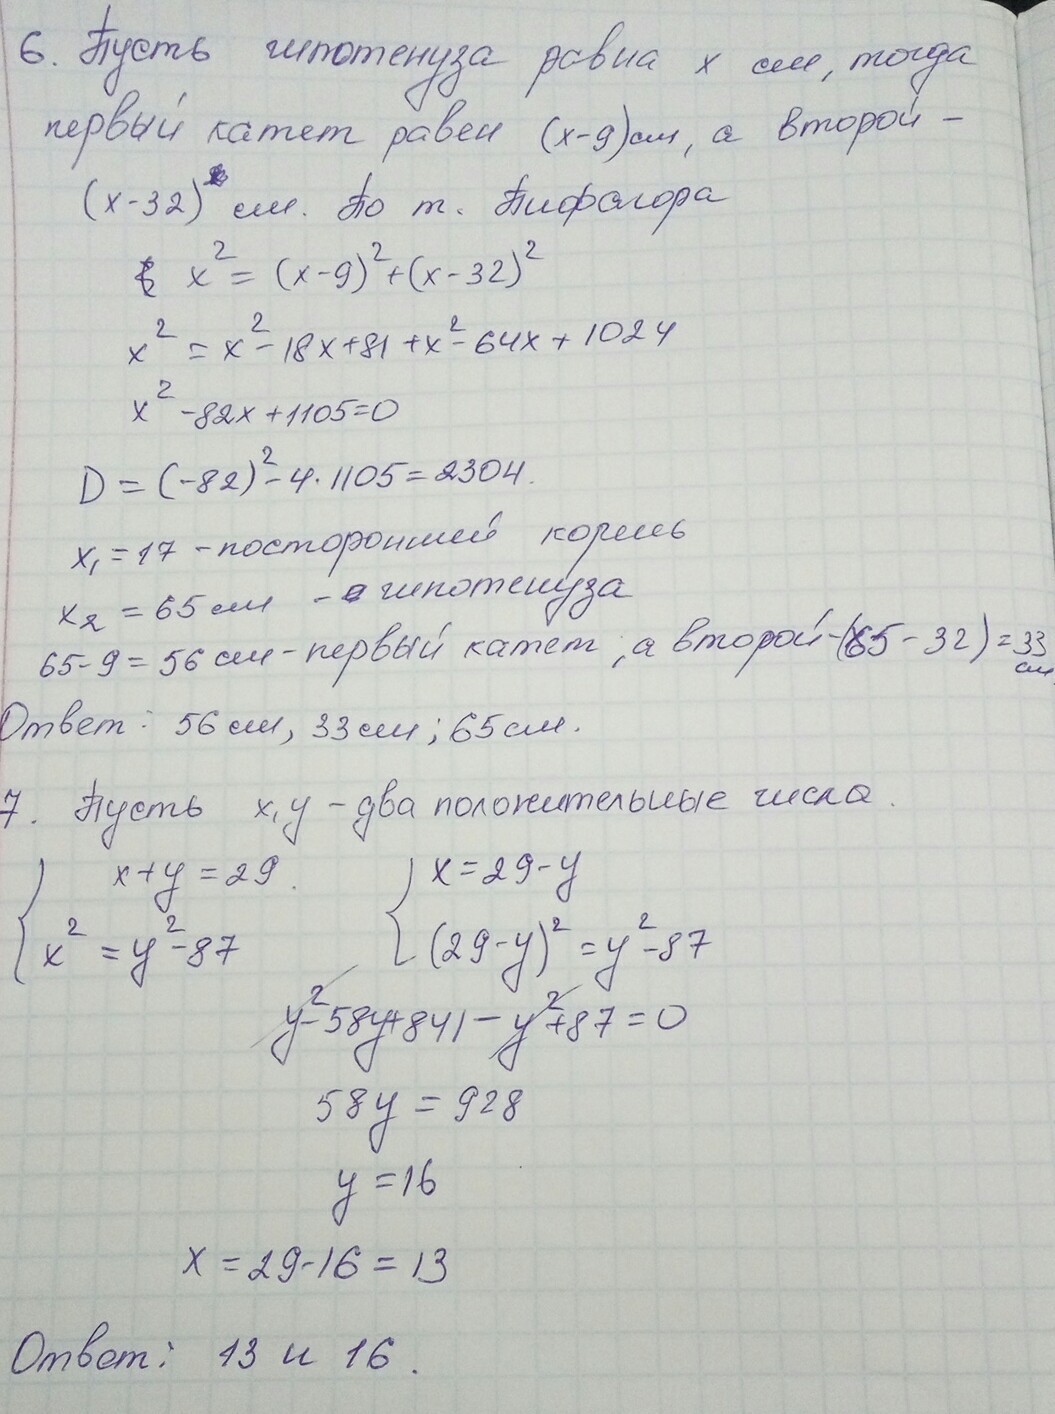 6. Пусть гипотенуза равна x см, тогда
первый катет равен (x-9)см, а второй -
(x-32) см. По т. Пифагора
x² = (x-9)²+(x-32)²
x² = x²-18x+81+x²-64x+1024
x²-82x+1105=0
D = (-82)²-4·1105=2304.
x₁=17 - посторонний корень
x₂ = 65 см - гипотенуза
65-9=56 см - первый катет, а второй-(65-32)=33
см.
Ответ: 56 см, 33 см; 65 см.
7. Пусть x, y - два положительные числа.
{ x+y=29. { x=29-y
x² = y²-87 (29-y)² = y²-87
y²-58y+841-y²+87=0
58y = 928
y = 16
x = 29-16 = 13
Ответ: 13 и 16.